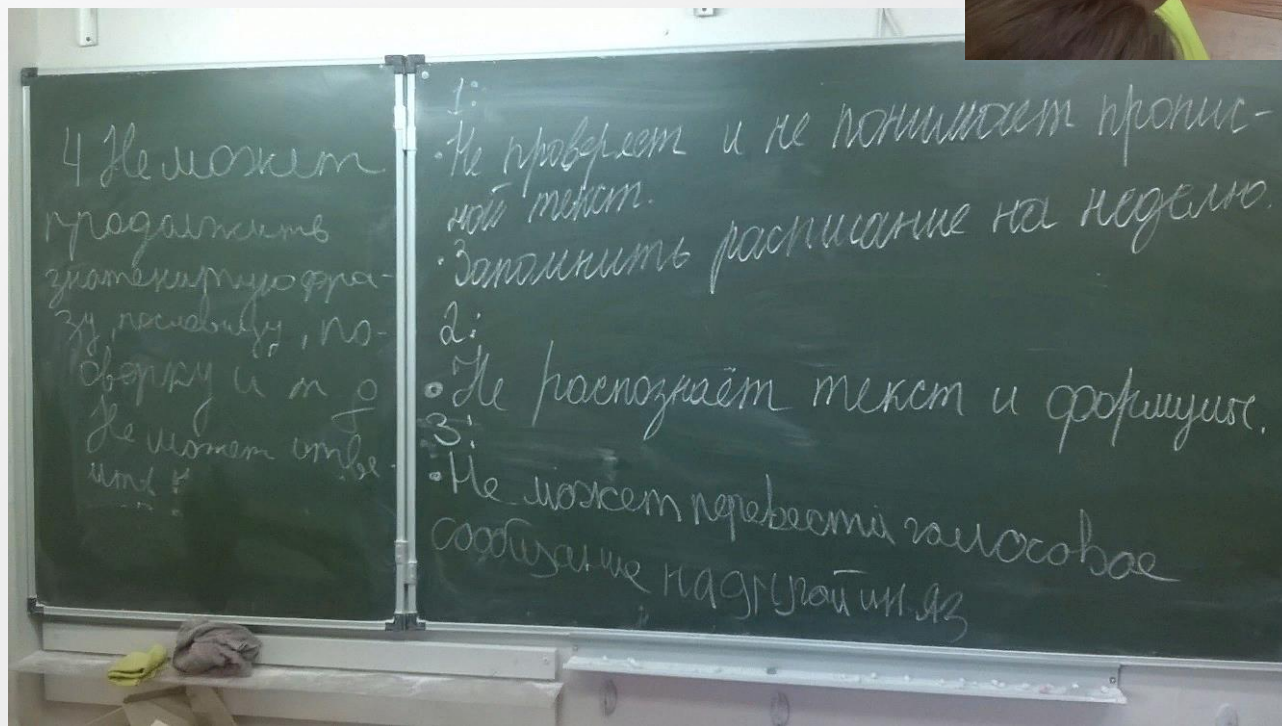 4 Не может
продолжить
знаменитую фра-
зу, пословицу, по-
оворку и т д
Не может отве
ить
1:
· Не проверяет и не понимает пропис-
ной текст.
· Запомнить расписание на неделю.
2:
· Не распознаёт текст и формулы.
3:
· Не может перевести галосовое
сообщание на другой ин. яз